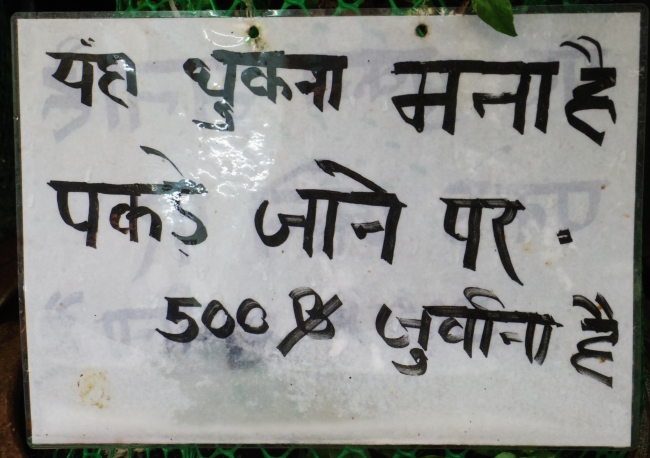 यँहा थुकना मना है
पकड़े जाने पर .
500 ₨ जुर्वाना है